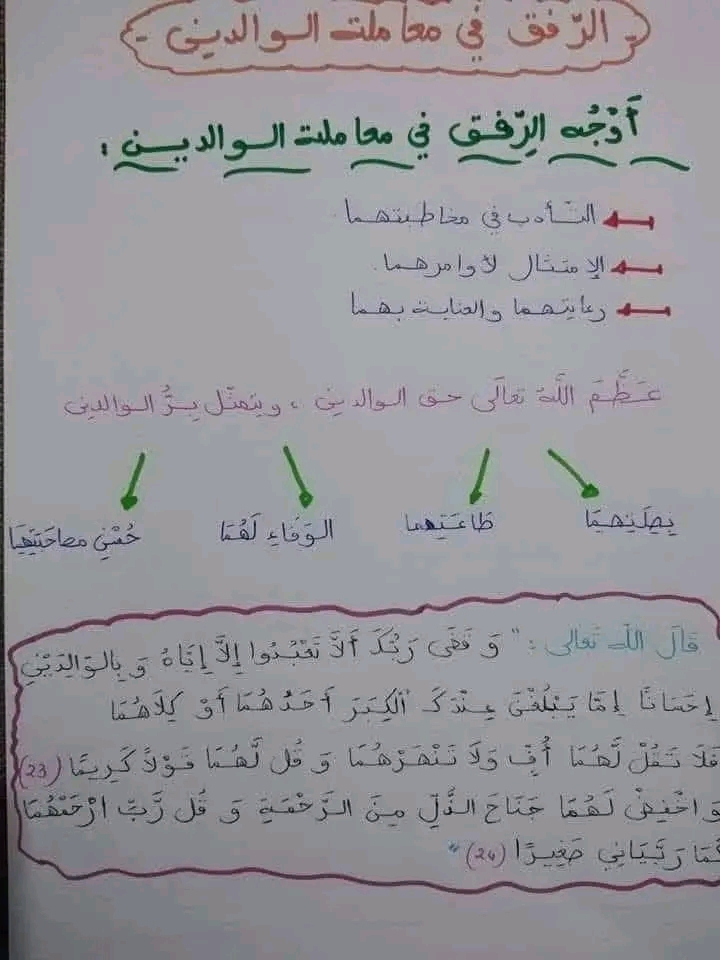 - الرّفق في معاملة الوالدين -
أَوْجُه الرِّفق في معاملة الوالدين :
التّأدب في مخاطبتهما.
الإمتثال لأوامرهما.
رعايتهما والعناية بهما
عَظَّمَ اللَّهُ تعالَى حق الوالدين ، ويتمثّل بِرُّ الوالدين
بِصِلَتِهِمَا طَاعَتِهِما الوَفَاءِ لَهُمَا حُسْنِ مصاحَبَتِهِمَا
قَالَ اللَّه تَعالى : " وَ قَضَى رَبُّكَ أَلَّا تَعْبُدُوا إِلَّا إِيَّاهُ وَ بِالوَالِدَيْنِ
إِحْسَانًا إِمَّا يَبْلُغَنَّ عِنْدَكَ الْكِبَرَ أَحَدُهُمَا أَوْ كِلَاهُمَا
فَلَا تَقُلْ لَّهُمَا أُفٍّ وَلَا تَنْهَرْهُمَا وَ قُل لَّهُمَا قَوْلاً كَرِيمًا (23)
وَ اخْفِضْ لَهُمَا جَنَاحَ الذُّلِّ مِنَ الرَّحْمَةِ وَ قُل رَّبِّ ارْحَمْهُمَا
كَمَا رَبَّيَانِي صَغِيرًا (24) "